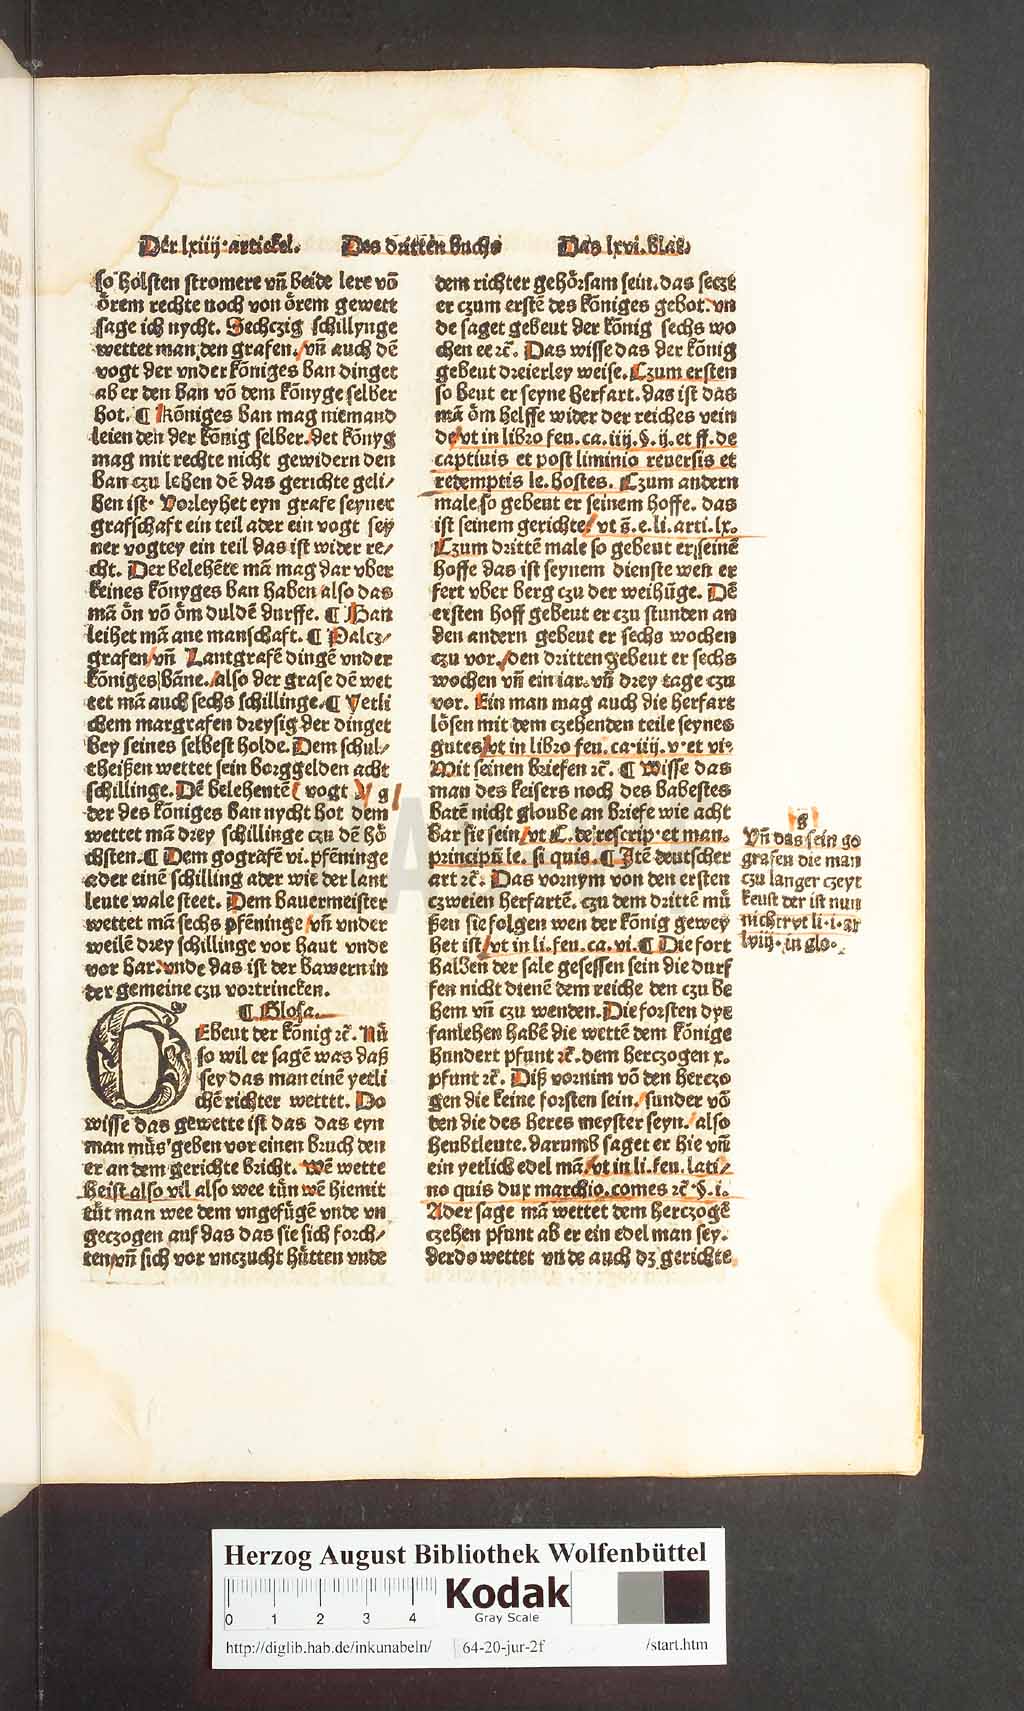 Der lxiiij. artickel. Des dritten buchs Das lxvi. blat.
so holsten stromere vñ beide lere võ
örem rechte noch von örem gewett
sage ich nycht. Sechczig schillynge
wettet man den grafen. vñ auch dē
vogt der vnder königes ban dinget
ab er den ban võ dem könyge selber
hot. ¶ königes ban mag niemand
leien den der könig selber. det könyg
mag mit rechte nicht gewidern den
ban czu lehen dē das gerichte geli/
hen ist. Vorleyhet eyn grafe seyner
grafschaft ein teil ader ein vogt sey
ner vogtey ein teil das ist wider re/
cht. Der belehēte mā mag dar vber
keines könyges ban haben also das
mā ön võ öm duldē durffe. ¶ Ban
leihet mā ane manschaft. ¶ Palcz/
grafen/vñ Lantgrafē dingē vnder
königes bāne. also der grafe dē wet
tet mā auch sechs schillinge. ¶ Yetli
chem margrafen dreysig der dinget
bey seines selbest holde. Dem schul/
theißen wettet sein borggelden acht
schillinge. Dē belehentē vogt
der des königes ban nycht hot dem
wettet mā drey schillinge czu dē hö
chsten. ¶ Dem gografē vi. pfēninge
ader einē schilling ader wie der lant
leute wale steet. Dem bauermeister
wettet mā sechs pfēninge/vñ vnder
weilē drey schillinge vor haut vnde
vor har. vnde das ist der bawern in
der gemeine czu vortrincken.
¶ Glosa.
GEbeut der könig ꝛc̄. Nū
so wil er sagē was daß
sey das man einē yetli
chē richter wettet. Do
wisse das gewette ist das das eyn
man müs geben vor einen bruch den
er an dem gerichte bricht. Wē wette
heist also vil also wee tün wē hiemit
tüt man wee dem vngefügē vnde vn
geczogen auf das das sie sich forch/
ten/vñ sich vor vnczucht hütten vnde
dem richter gehörsam sein. das seczt
er czum erstē des königes gebot. vn
de saget gebeut der könig sechs wo
chen ee ꝛc̄. Das wisse das der könig
gebeut dreierley weise. Czum ersten
so beut er seyne herfart. das ist das
mā öm helffe wider der reiches vein
de/vt in libro feu. ca. iiij. §. ij. et ff. de
captiuis et post liminio reuersis et
redemptis le. hostes. Czum andern
male so gebeut er seinem hoffe. das
ist seinem gerichte/ vt s̄. e. li. arti. lx.
Czum drittē male so gebeut er seinē
hoffe das ist seynem dienste wen er
fert vber berg czu der weihüge. Dē
ersten hoff gebeut er czu stunden an
den andern gebeut er sechs wochen
czu vor. den dritten gebeut er sechs
wochen vñ ein iar. vñ drey tage czu
vor. Ein man mag auch die herfart
lösen mit dem czehenden teile seynes
gutes/vt in libro feu. ca. iiij. v. et vi.
Mit seinen briefen ꝛc̄. ¶ Wisse das
man des keisers noch des babestes
batē nicht gloube an briefe wie acht
bar sie sein/vt C. de rescrip. et man.
principū le. si quis. ¶ Itē deutscher
art ꝛc̄. Das vornym von den ersten
czweien herfartē. czu dem drittē mü
ßen sie folgen wen der könig gewey
het ist/vt in li. feu. ca. vi. ¶ Die fort
halben der sale gesessen sein die durf
fen nicht dienē dem reiche den czu be
hem vñ czu wenden. Die forsten dye
fanlehen habē die wettē dem könige
hundert pfunt ꝛc̄. dem herczogen x.
pfunt ꝛc̄. Diß vornim võ den herczo
gen die keine forsten sein. sunder võ
den die des heres meyster seyn. also
heubtleute. darumb saget er hie vñ
ein yetlich edel mā/vt in li. feu. lati/
no quis dux marchio. comes ꝛc̄. §. i.
Ader sage mā wettet dem herczogē
czehen pfunt ab er ein edel man sey.
derdo wettet vnde auch dz gerichte
g
Vñ das sein go
grafen die man
czu langer czeyt
keust der ist nun
nicht vt li. i. ar
lviij. in glo.
Herzog August Bibliothek Wolfenbüttel
0 1 2 3 4
Kodak
Gray Scale
http://diglib.hab.de/inkunabeln/ 64-20-jur-2f /start.htm